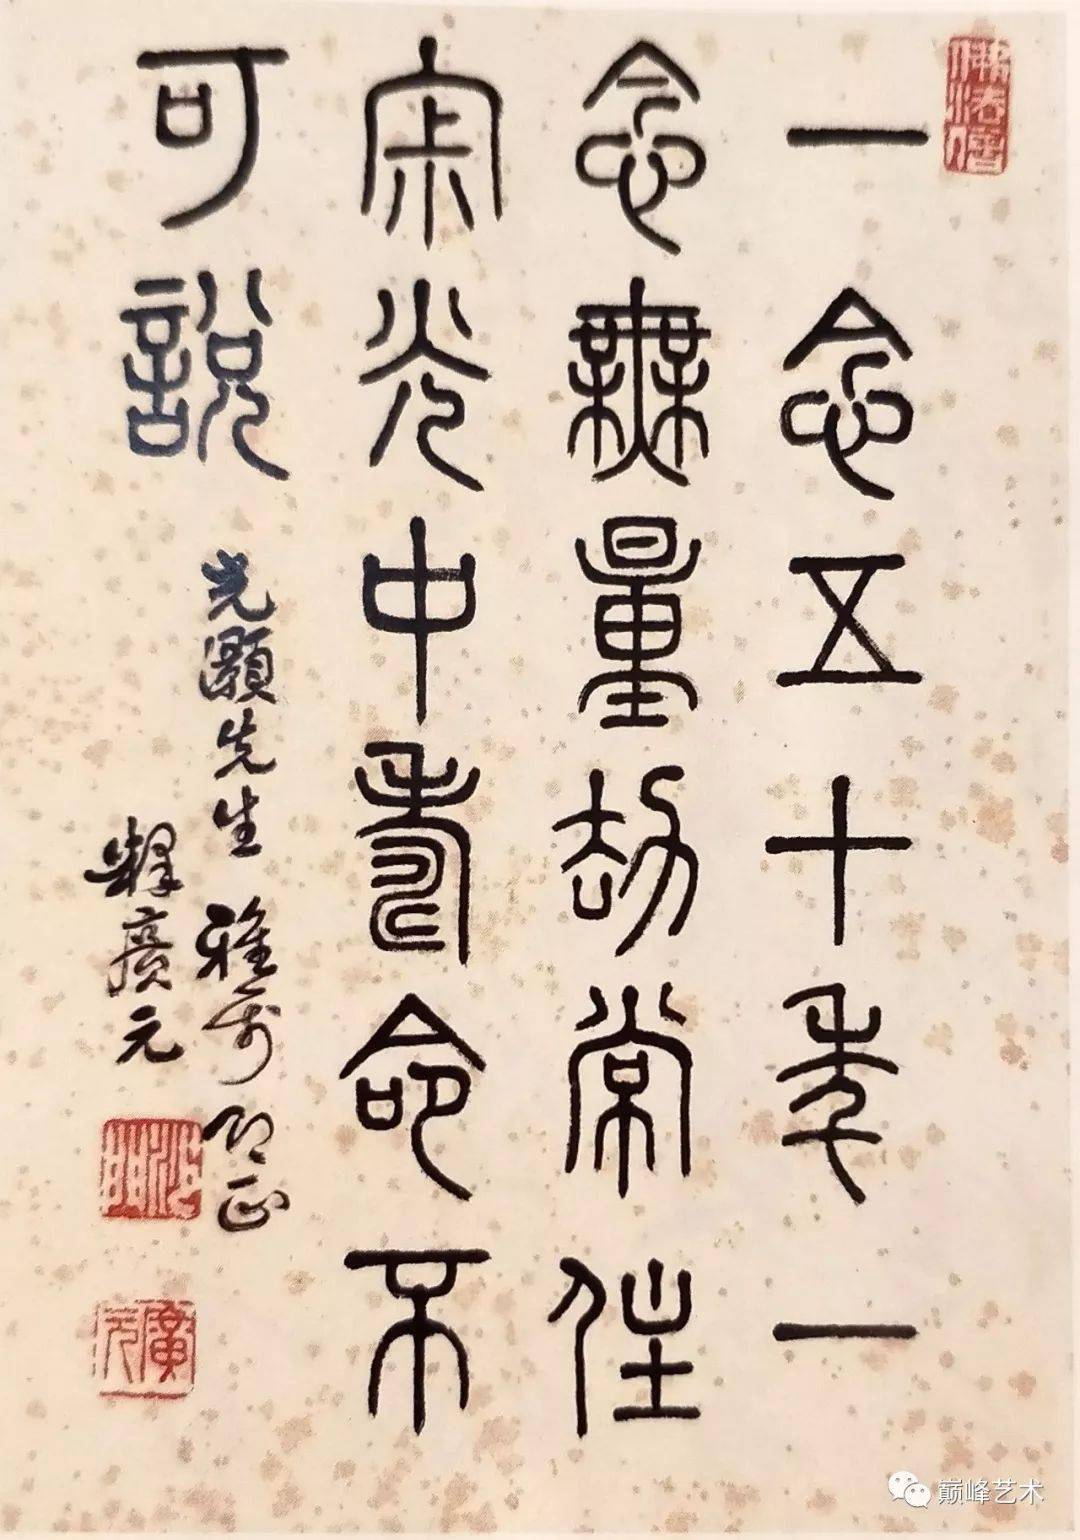 一念五十年一
念無量劫常住
寂光中壽命不
可說
光灝先生雅屬正
釋廣元
廣元
巅峰艺术